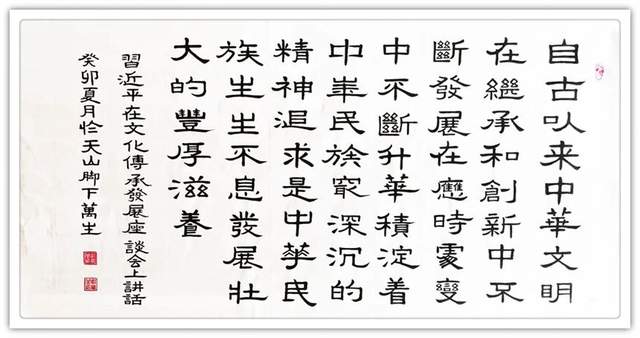 自古以来中華文明
在繼承和創新中不
斷發展在應時處變
中不斷升華積淀着
中華民族㝡深沉的
精神追求是中華民
族生生不息發展壯
大的豐厚滋養
習近平在文化傳承發展座談会上講話
癸卯夏月於天山脚下萬生